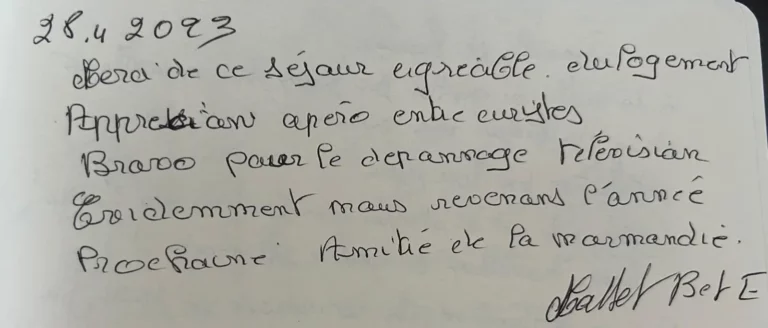 28.4 2023
Merci de ce séjour agréable. du logement
Apprécion apéro entre curistes
Bravo pour le depannage télévision
Evidemment nous revenons l'année
Prochaine Amitié de la Normandie.
B et E